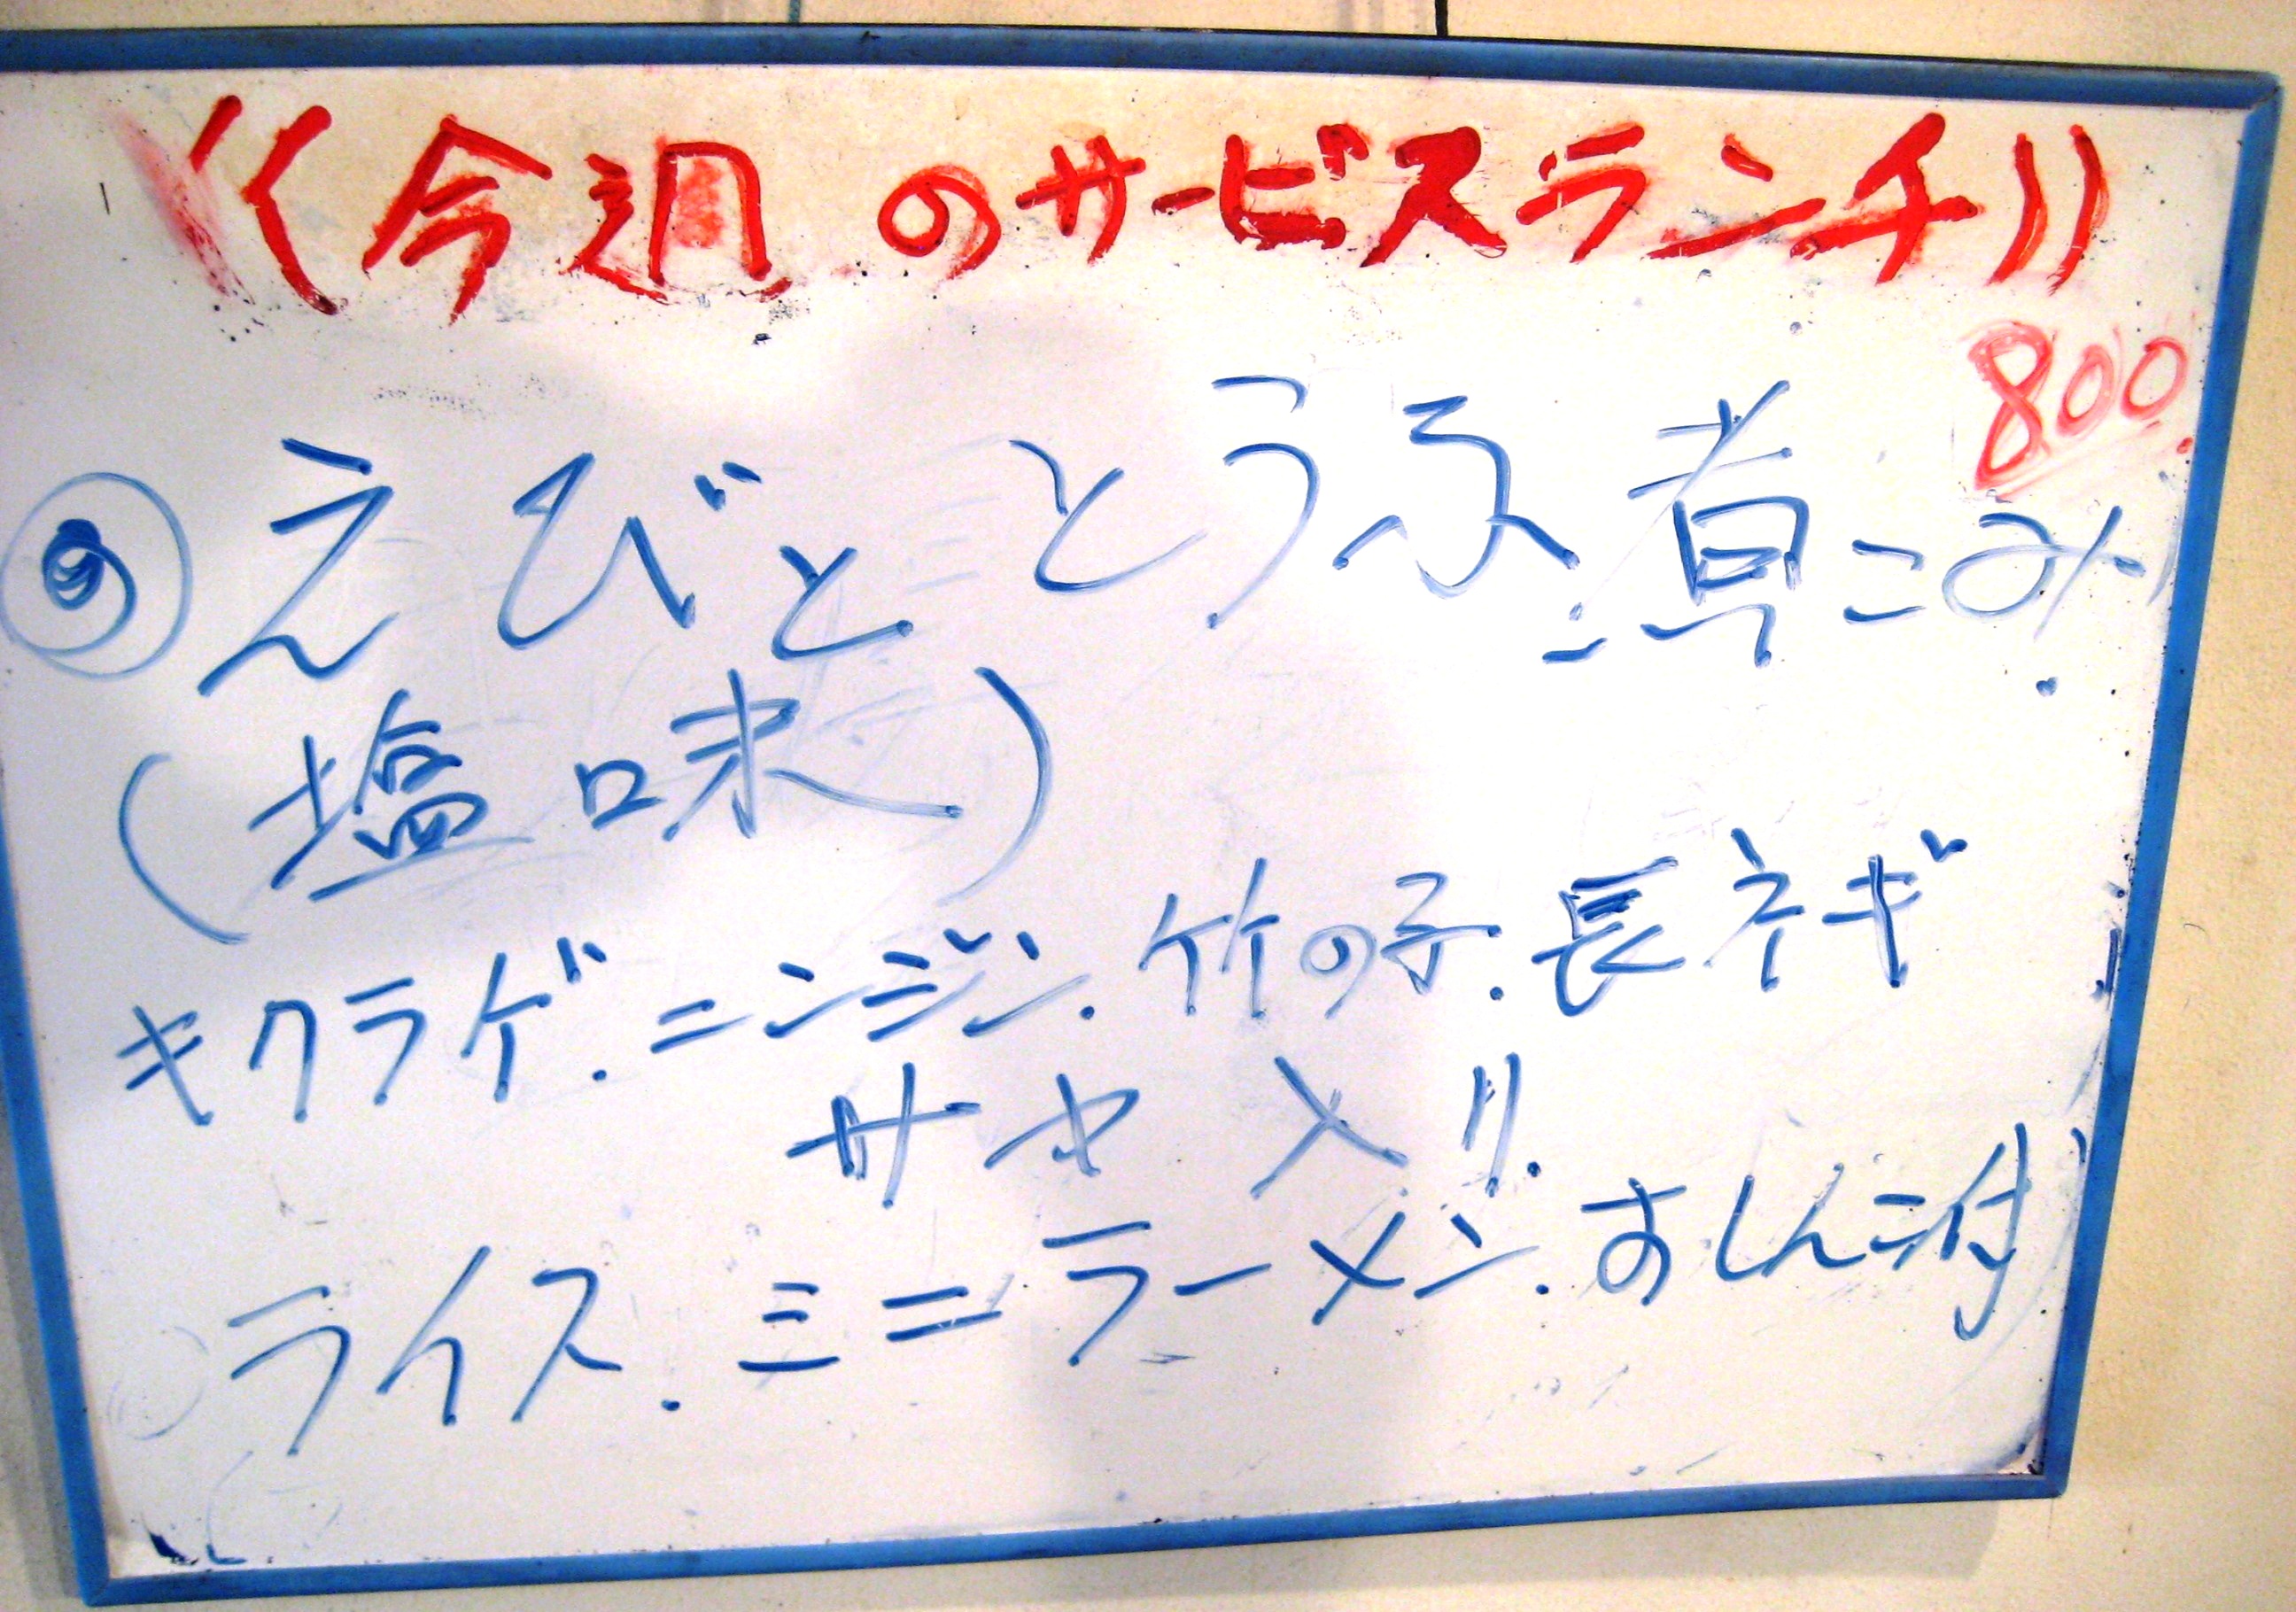 《今週のサービスランチ》
800.
◎えびと とうふ煮こみ.
(塩味)
キクラゲ.ニンジン.竹の子.長ネギ
サヤ入り.
ライス.ミニラーメン.おしんこ付